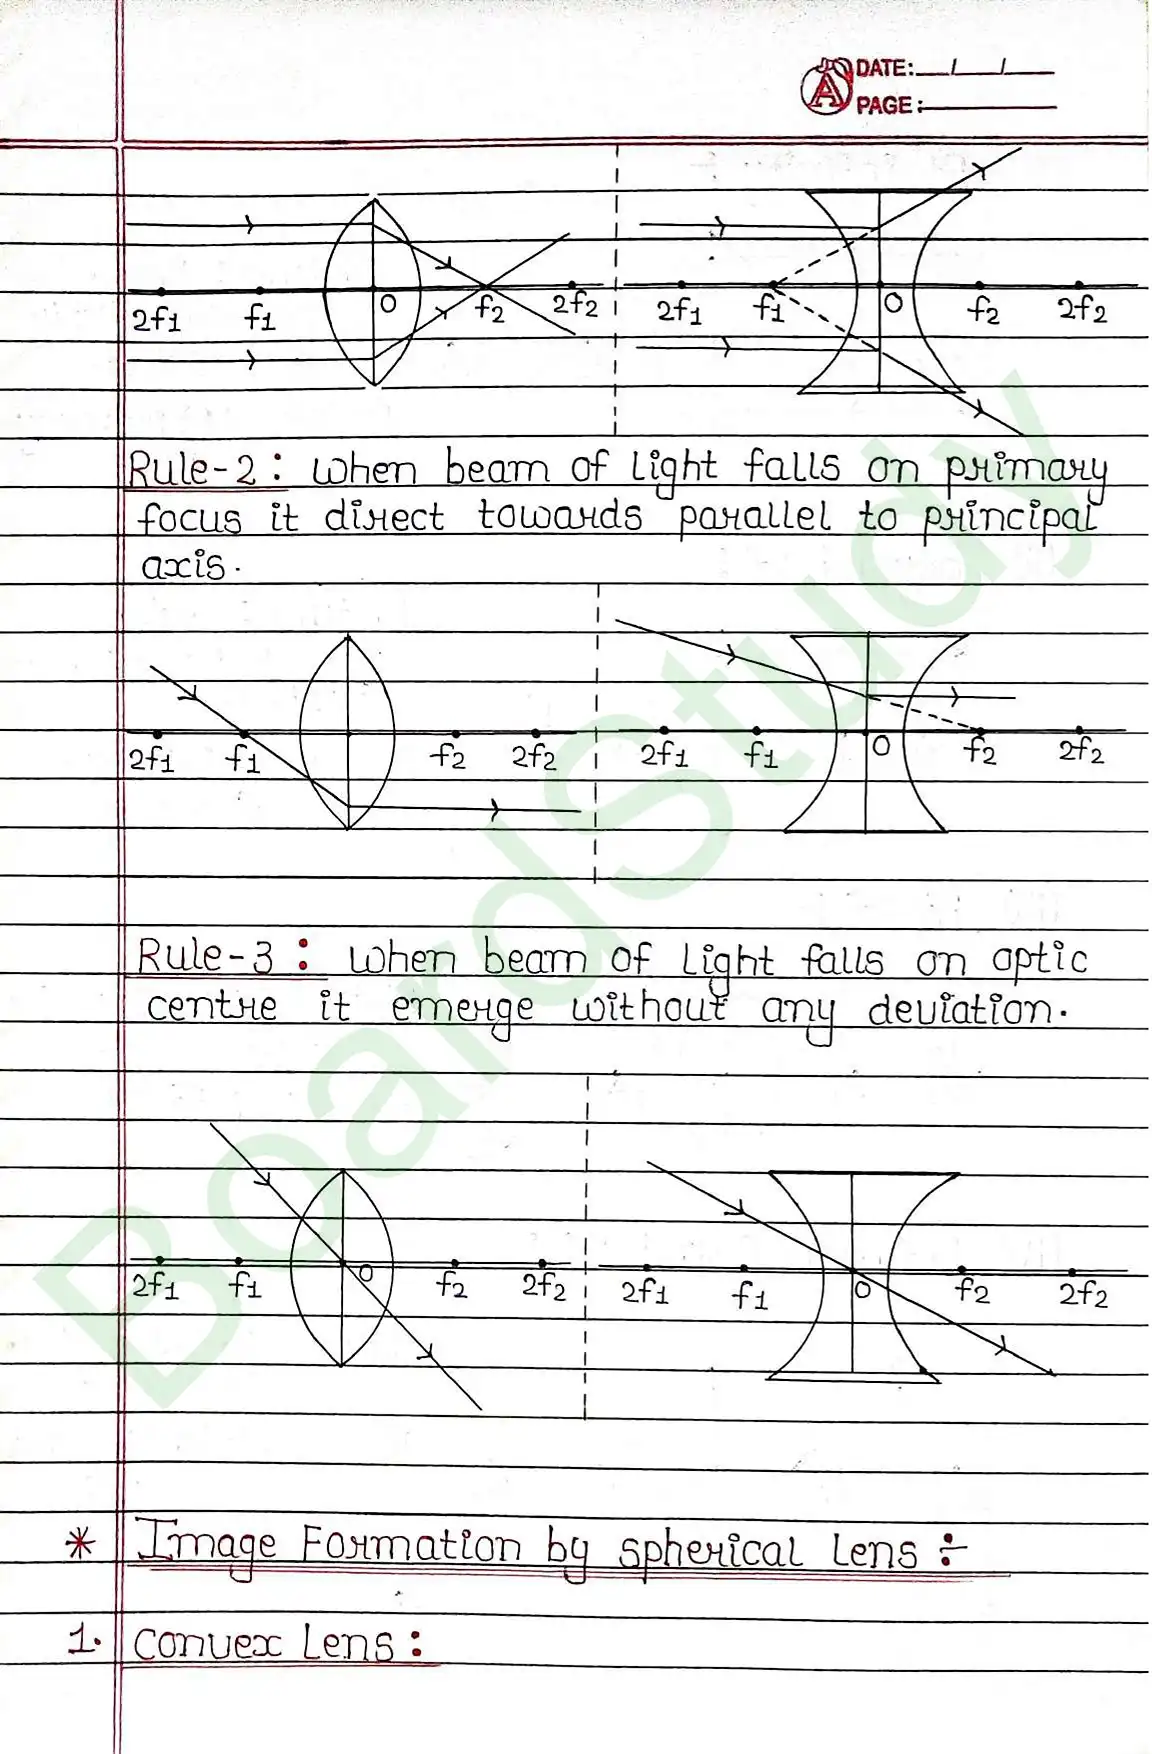 DATE: / /
PAGE:
2f1 f1 O f2 2f2 2f1 f1 O f2 2f2
Rule-2: When beam of Light falls on primary
focus it direct towards parallel to principal
axis.
2f1 f1 f2 2f2 2f1 f1 O f2 2f2
Rule-3: When beam of Light falls on optic
centre it emerge without any deviation.
2f1 f1 O f2 2f2 2f1 f1 O f2 2f2
* Image Formation by spherical Lens ÷
1. Convex Lens:
BoardStudy